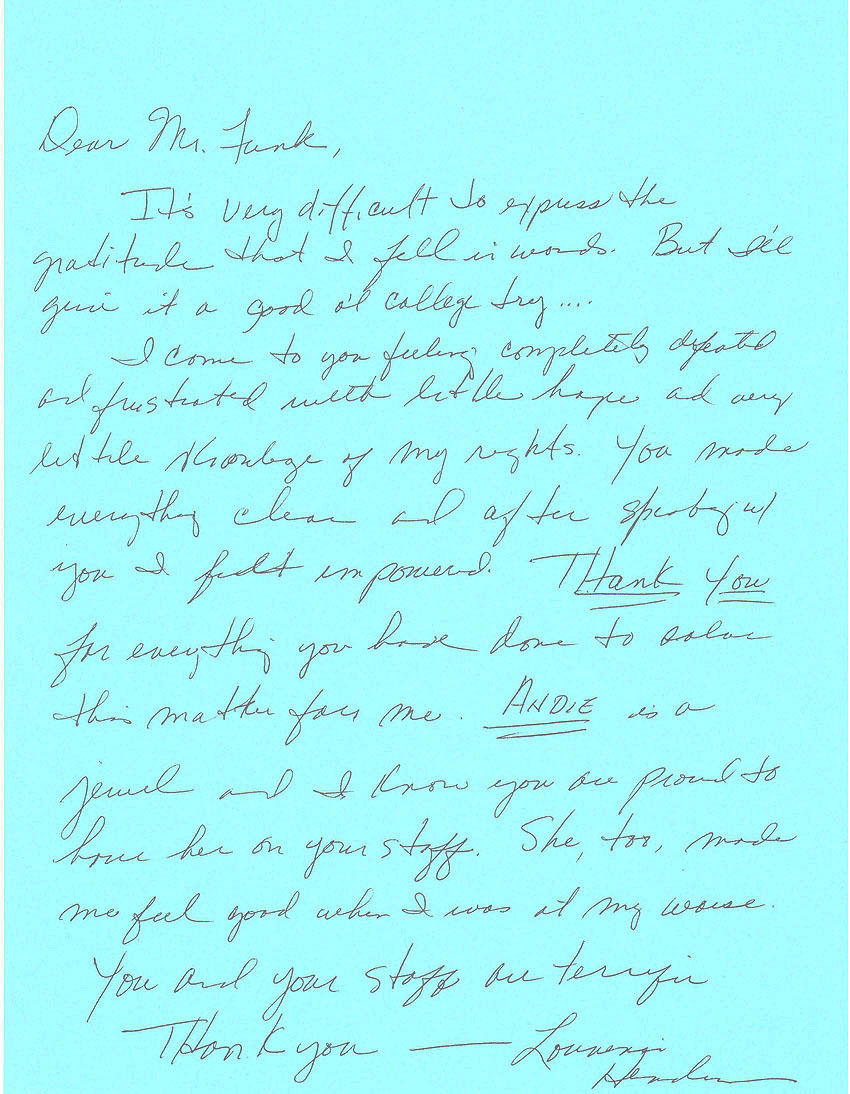 Dear Mr. Funk,
It's very difficult to express the
gratitude that I fell in words. But I'll
give it a good o'l college try....
I come to you feeling completely defeated
and frustrated with little hope and very
little knowledge of my rights. You made
everything clear and after speaking w/
you I felt empowered. THank You
for everything you have done to solve
this matter for me. ANDIE is a
jewel and I know you are proud to
have her on your staff. She, too, made
me feel good when I was at my worse.
You and your staff are terrific
THank you —